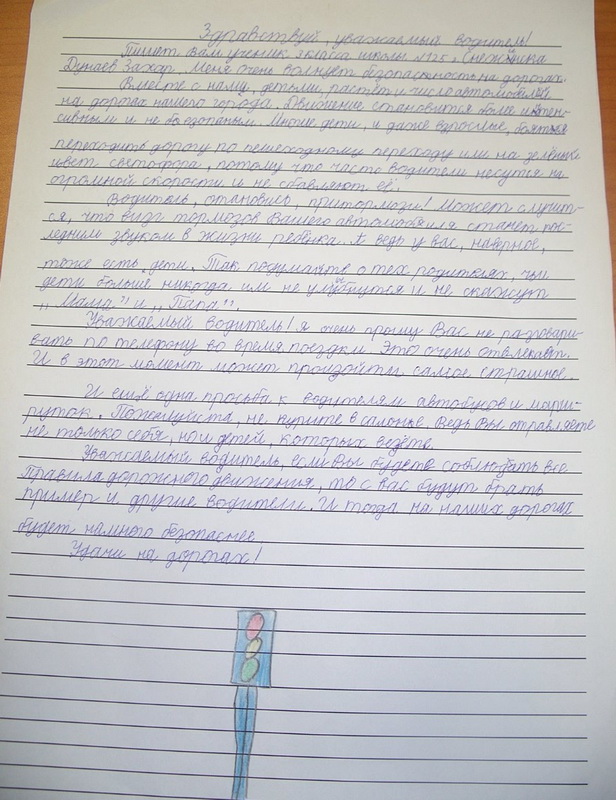 Здравствуй, уважаемый водитель!
Пишет Вам ученик 3 класса школы №125, г. Снежинка
Дунаев Захар. Меня очень волнует безопасность на дорогах.
Вместе с нами, детьми, растёт и число автомобилей
на дорогах нашего города. Движение становится более интен-
сивным и не безопасным. Многие дети, и даже взрослые, боятся
переходить дорогу по пешеходному переходу или на зелёный
цвет светофора, потому что часто водители несутся на
огромной скорости и не сбавляют её.
Водитель, становись, притормози! Может случит-
ся, что визг тормозов Вашего автомобиля станет пос-
ледним звуком в жизни ребёнка. А ведь у вас, наверное,
тоже есть дети. Так подумайте о тех родителях, чьи
дети больше никогда им не улыбнутся и не скажут
„Мама" и „Папа".
Уважаемый водитель! Я очень прошу Вас не разговари-
вать по телефону во время поездки. Это очень отвлекает.
И в этот момент может произойти самое страшное.
И ещё одна просьба к водителям автобусов и марш-
руток. Пожалуйста, не курите в салоне. Ведь Вы отравляете
не только себя, но и детей, которых везёте.
Уважаемый водитель, если Вы будете соблюдать все
Правила дорожного движения, то с вас будут брать
пример и другие водители. И тогда на наших дорогах
будет намного безопаснее.
Удачи на дорогах!